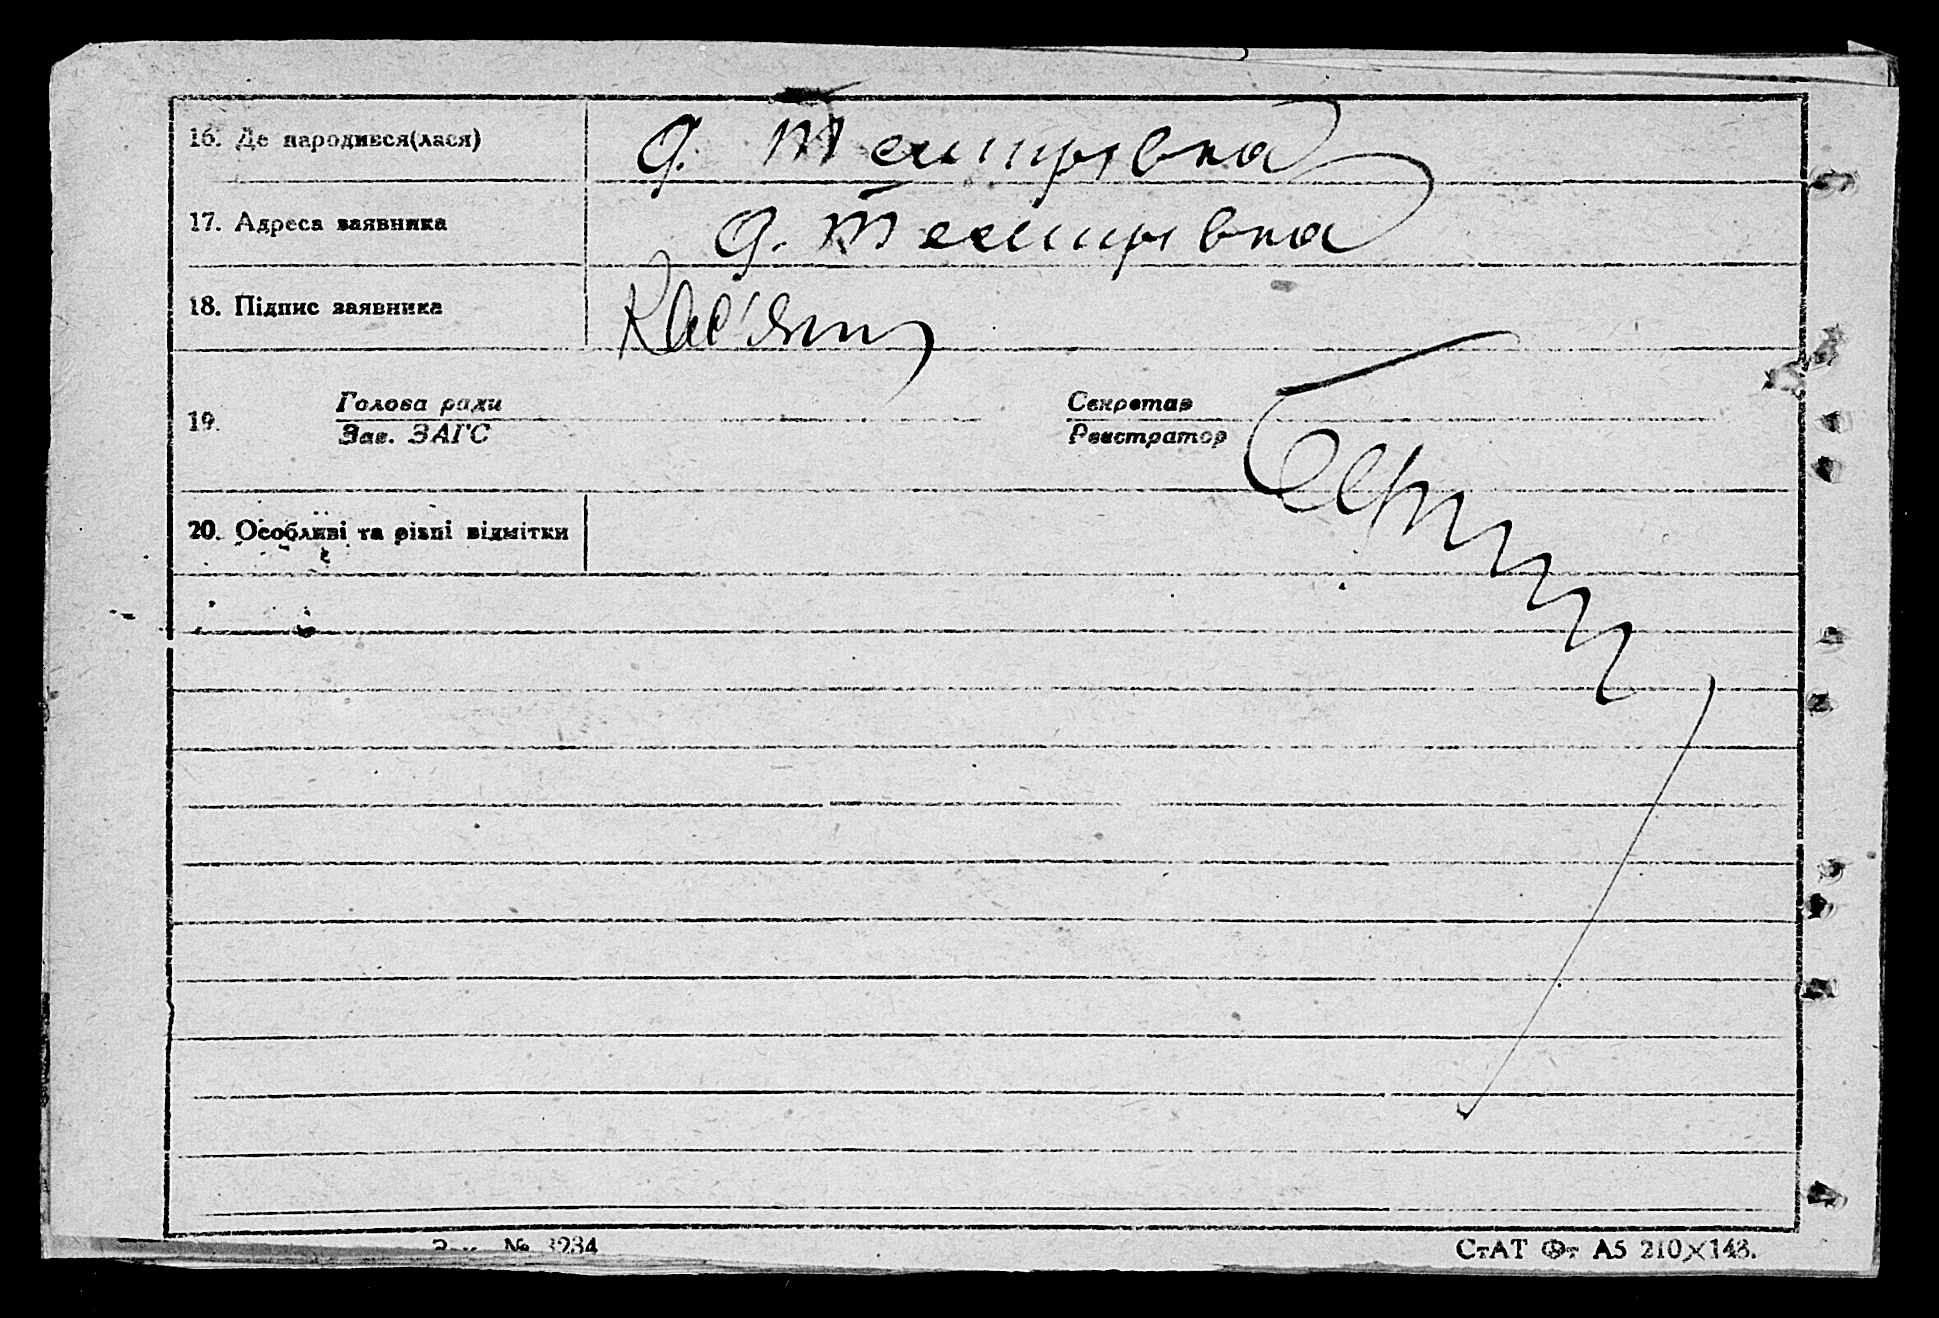 16. Де народився(лася) д. Темирівка
17. Адреса заявника д. Темирівка
18. Підпис заявника
19. Голова ради Секретар
Зав. ЗАГС Реєстратор
20. Особливі та різні відмітки
№ 3234 СтАТ Фт А5 210×148.